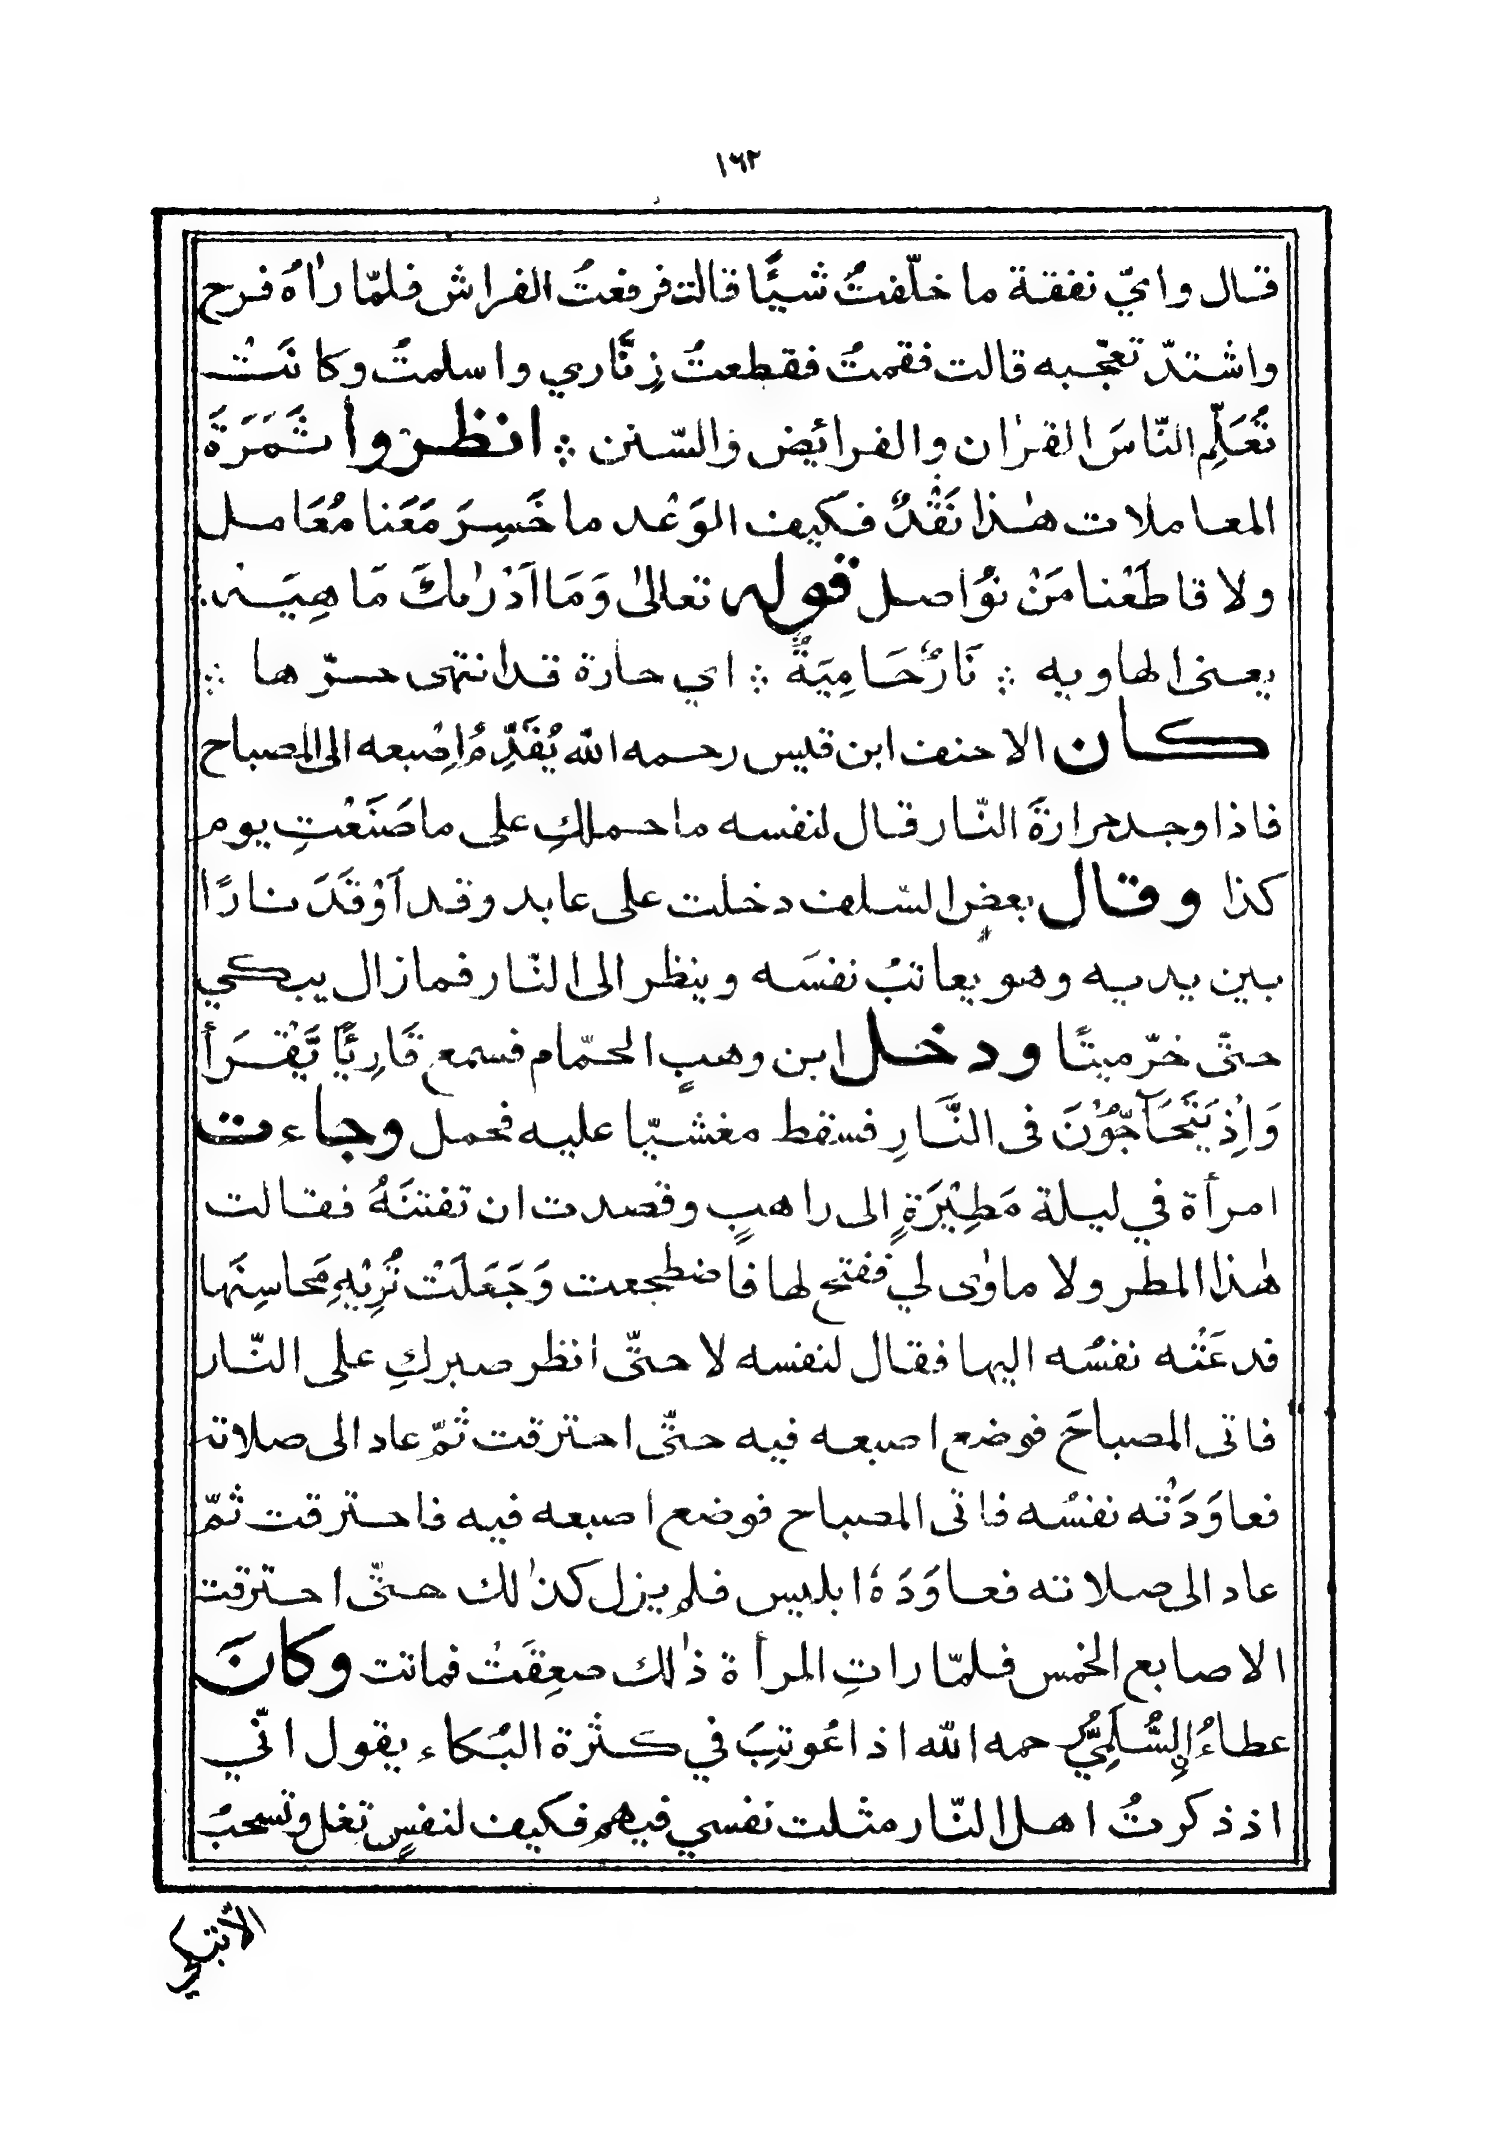 ١٦٢
قال وايّ نفقة ما خلّفتُ شيئًا قالت فرفعتُ الفراش فلمّا راٰهُ فرح
واشتدّ تعجّبه قالت فقمتُ فقطعتُ زِنَّاري واسلمتُ وكانَتْ
تُعَلِّم النّاسَ القراٰن والفرائض والسّنن ؞ انظروا ثَمَرَةَ
المعاملات هٰذا نَقْدٌ فكيف الوَعْد ما خَسِرَ مَعَنا مُعَامل
ولا قاطَعْنا مَنْ نُوَاصل قوله تعالىٰ وَمَا اَدْرٰىكَ مَا هِيَه ؞
يعنى الهاويه ؞ نَارٌ حَامِيَةٌ ؞ اي حارة قد انتهى حرّها ؞
كان الاحنف ابن قيس رحمه الله يُقَدِّمُ اِصْبعه الى المصباح
فاذا وجد حرارةَ النّار قال لنفسه ما حملكِ على ما صَنَعْتِ يوم
كذا وقال بعض السّلف دخلت على عابد وقد اَوْقَدَ نارًا
بين يديه وهو يعاتبُ نفسَه وينظر الى النّار فما زال يبكي
حتّى خرّ ميتًا ودخل ابن وهبٍ الحمّام فسمع قَارِئًا يَّقْرَأ
وَاِذْ يَتَحَآجُّوْنَ فى النَّارِ فسقط مغشيّا عليه فحمل وجاءت
امرأة في ليلة مَطِيْرَةٍ الى راهبٍ وقصدت ان تفتنَهُ فقالت
هٰذا المطر ولا ماوٰى لي ففتح لها فاضطجعت وَجَعَلَتْ تُرِيْهِ مَحاسِنَها
فدعَتْه نفسُه اليها فقال لنفسه لا حتّى انظر صبركِ على النّار
فاتى المصباحَ فوضع اصبعه فيه حتّى احترقت ثمّ عاد الى صلاته
فعاوَدَتْه نفسُه فاتى المصباح فوضع اصبعه فيه فاحترقت ثمّ
عاد الى صلاته فعاوَدَهُ ابليس فلم يزل كذٰلك حتّى احترقت
الاصابع الخمس فلمّا راتِ المرأة ذٰلك صعِقَتْ فماتت وكانَ
عطاءُ السُّلَمِيُّ رحمه الله اذا عُوتِبَ في كثْرة البُكاء يقول انّي
اذ ذكرتُ اهل النّار مثلت نفسي فيهم فكيف لنفسٍ تغل وتسحبُ
الّا تبكي